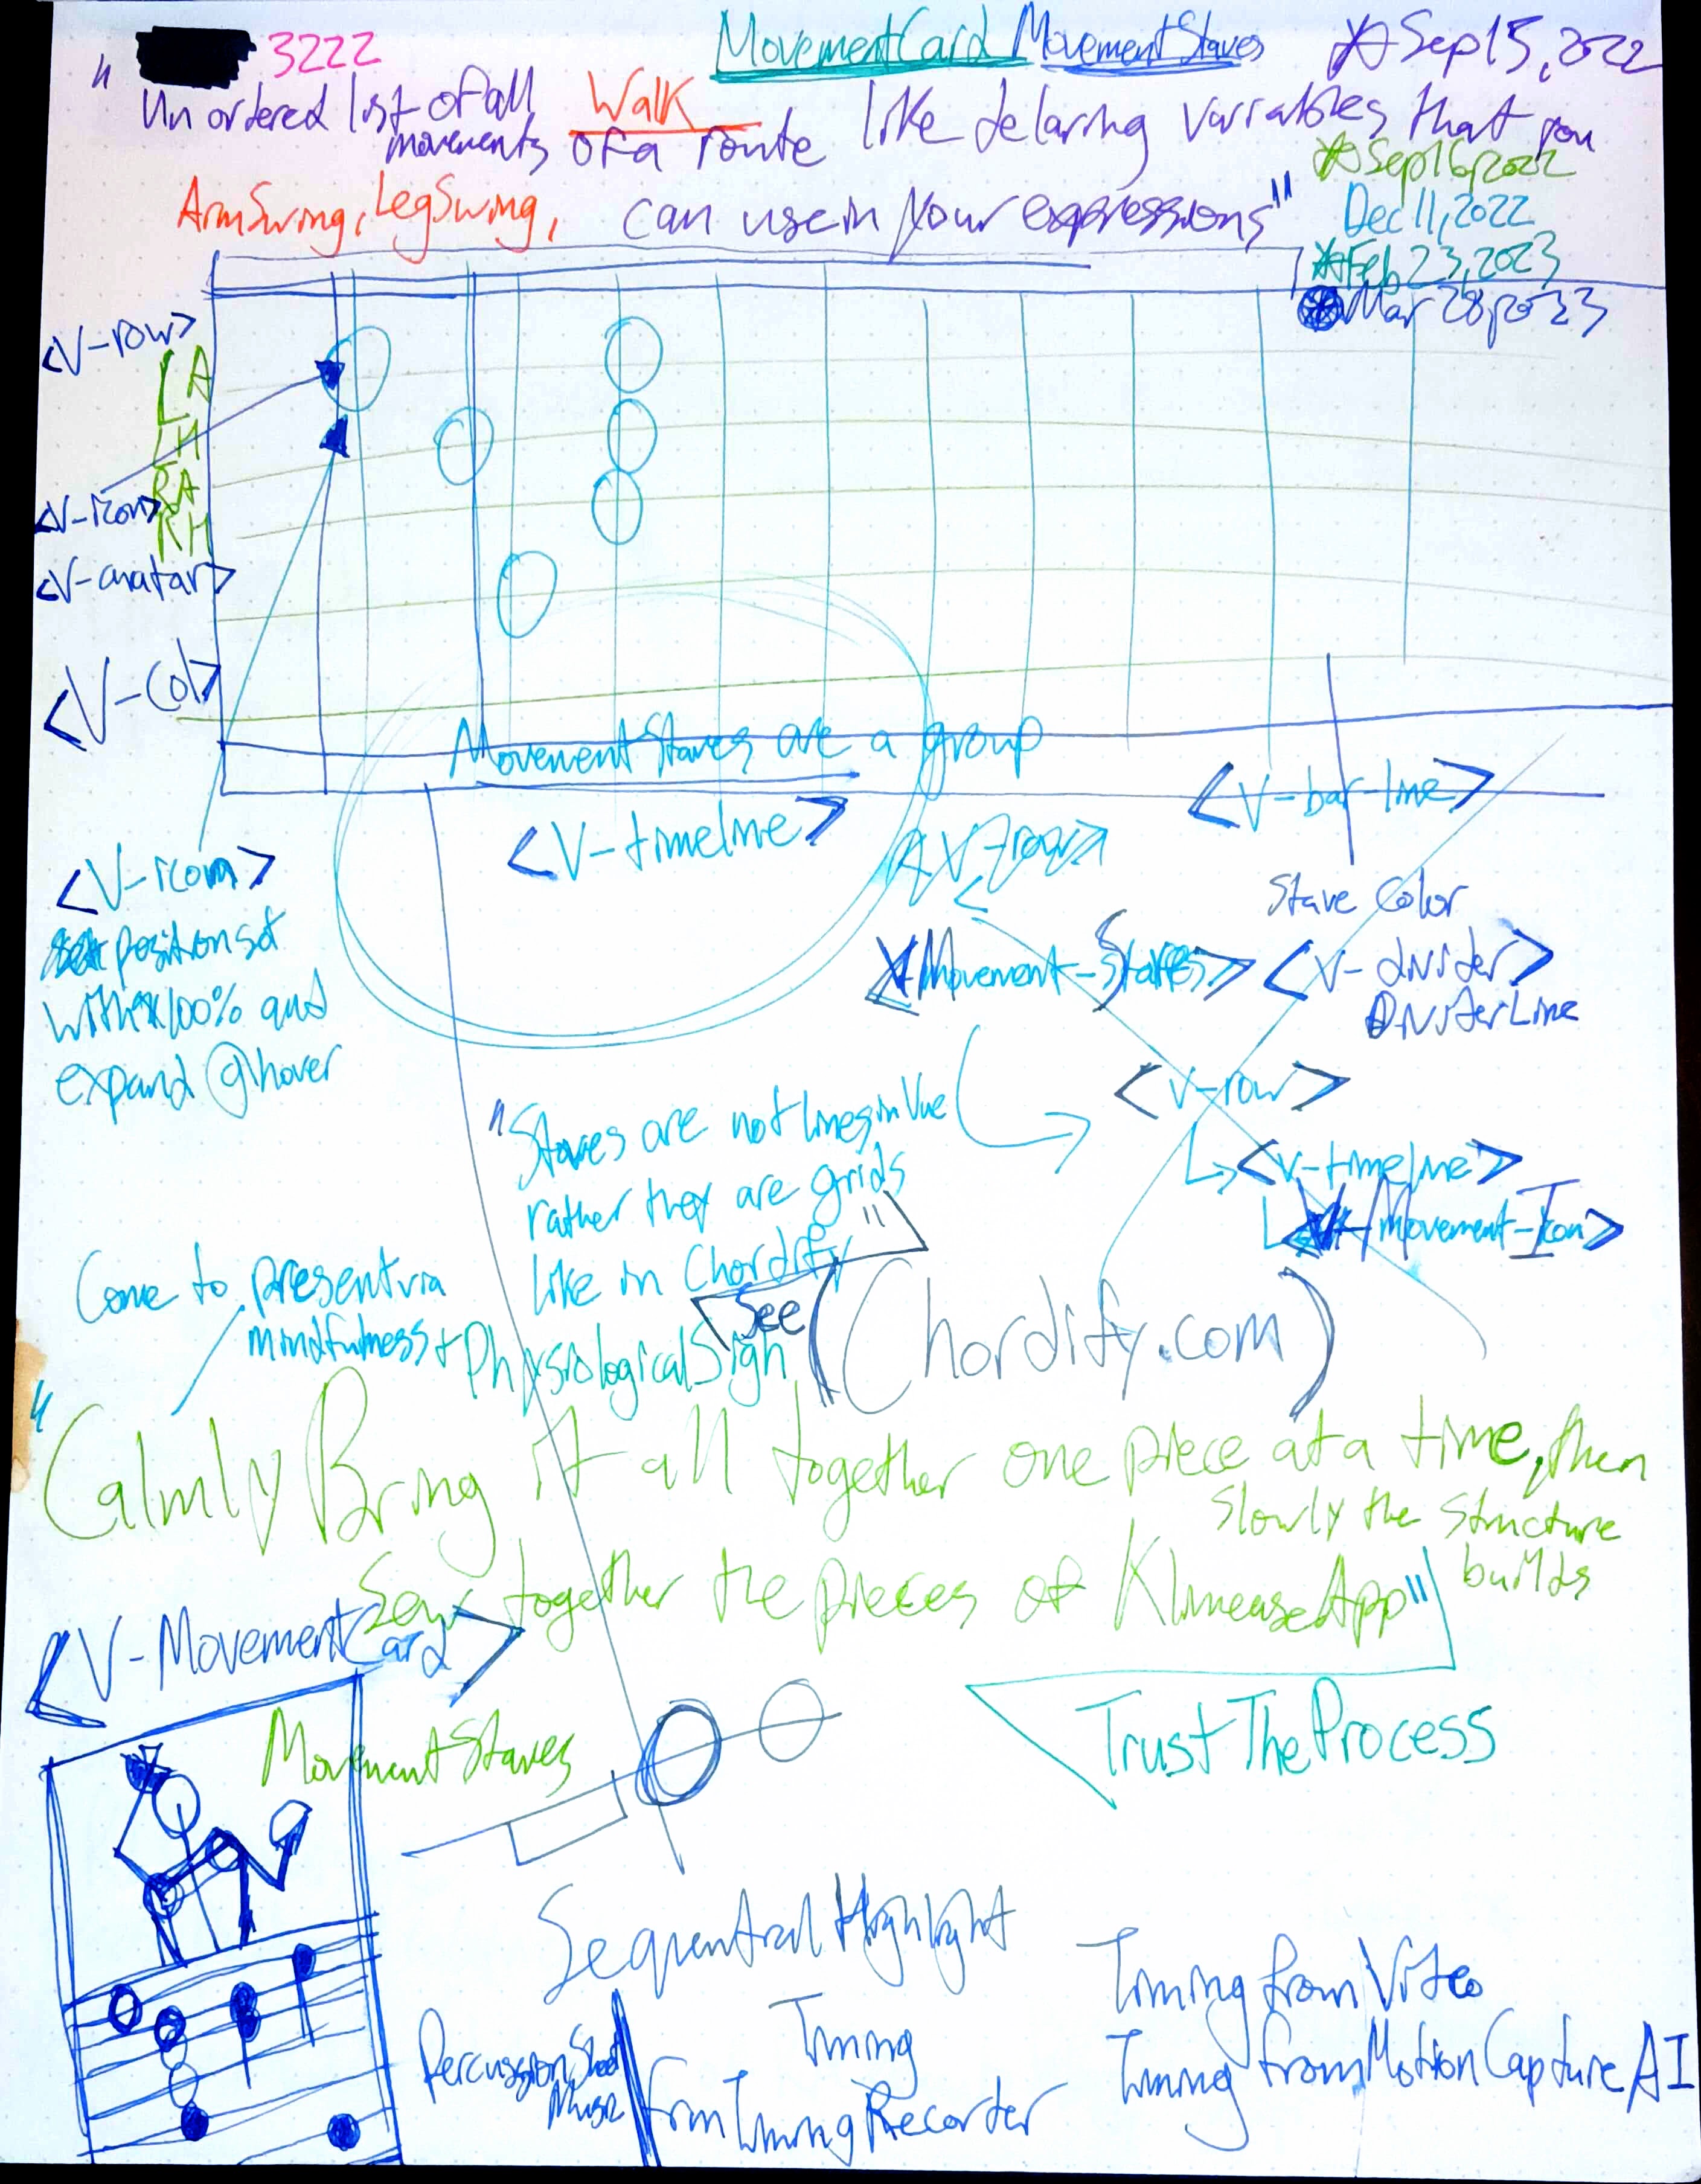 " 3222
MovementCard MovementStaves
Sep 15, 2022
Unordered list of all movements of a route like delaring variables that you
Walk
Sep 16, 2022
ArmSwing, LegSwing, can use in your expressions"
Dec 11, 2022
Feb 23, 2023
Mar 28, 2023
<V-row>
LA
LH
RA
RH
<V-icon>
<V-avatar>
<V-Col>
MovementStaves are a group
<V-timeline>
<V-row>
<V-bar-line>
<V-icon>
position set
with x 100% and
expand @hover
Stave Color
<Movement-Staves>
<V-divider>
DividerLine
<v-row>
<v-timeline>
movement-Icon>
"Staves are not lines in Vue
rather they are grids
like in Chordify"
See (Chordify.com)
Come to present via
mindfulness + PhysiologicalSigh
"Calmly Bring it all together one piece at a time, then
slowly the structure
builds
Sew together the pieces of KlimeaseApp"
<V-MovementCard>
MovementStaves
TrustTheProcess
Sequential Highlight
Percussion Sheet
Music
Timing
from TimingRecorder
Timing from Video
Timing from MotionCapture AI